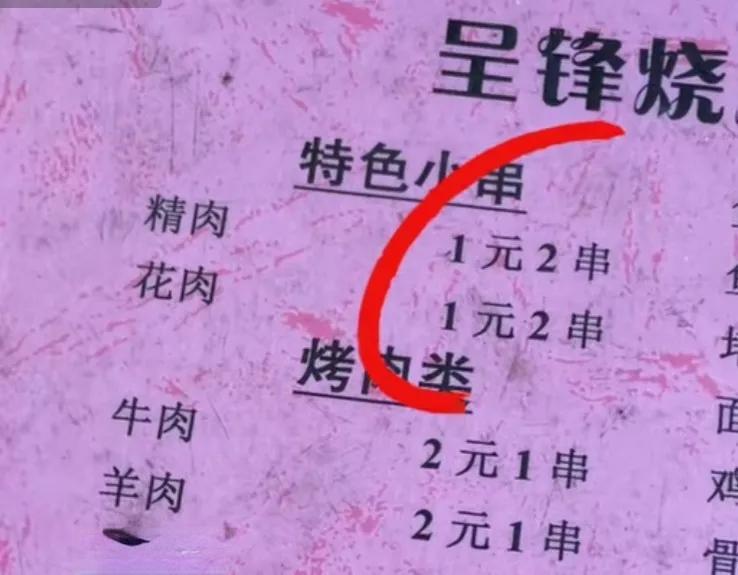 呈锋烧
特色小串
精肉 1元2串
花肉 1元2串
烤肉类
牛肉 2元1串
羊肉 2元1串
面
鸡
骨